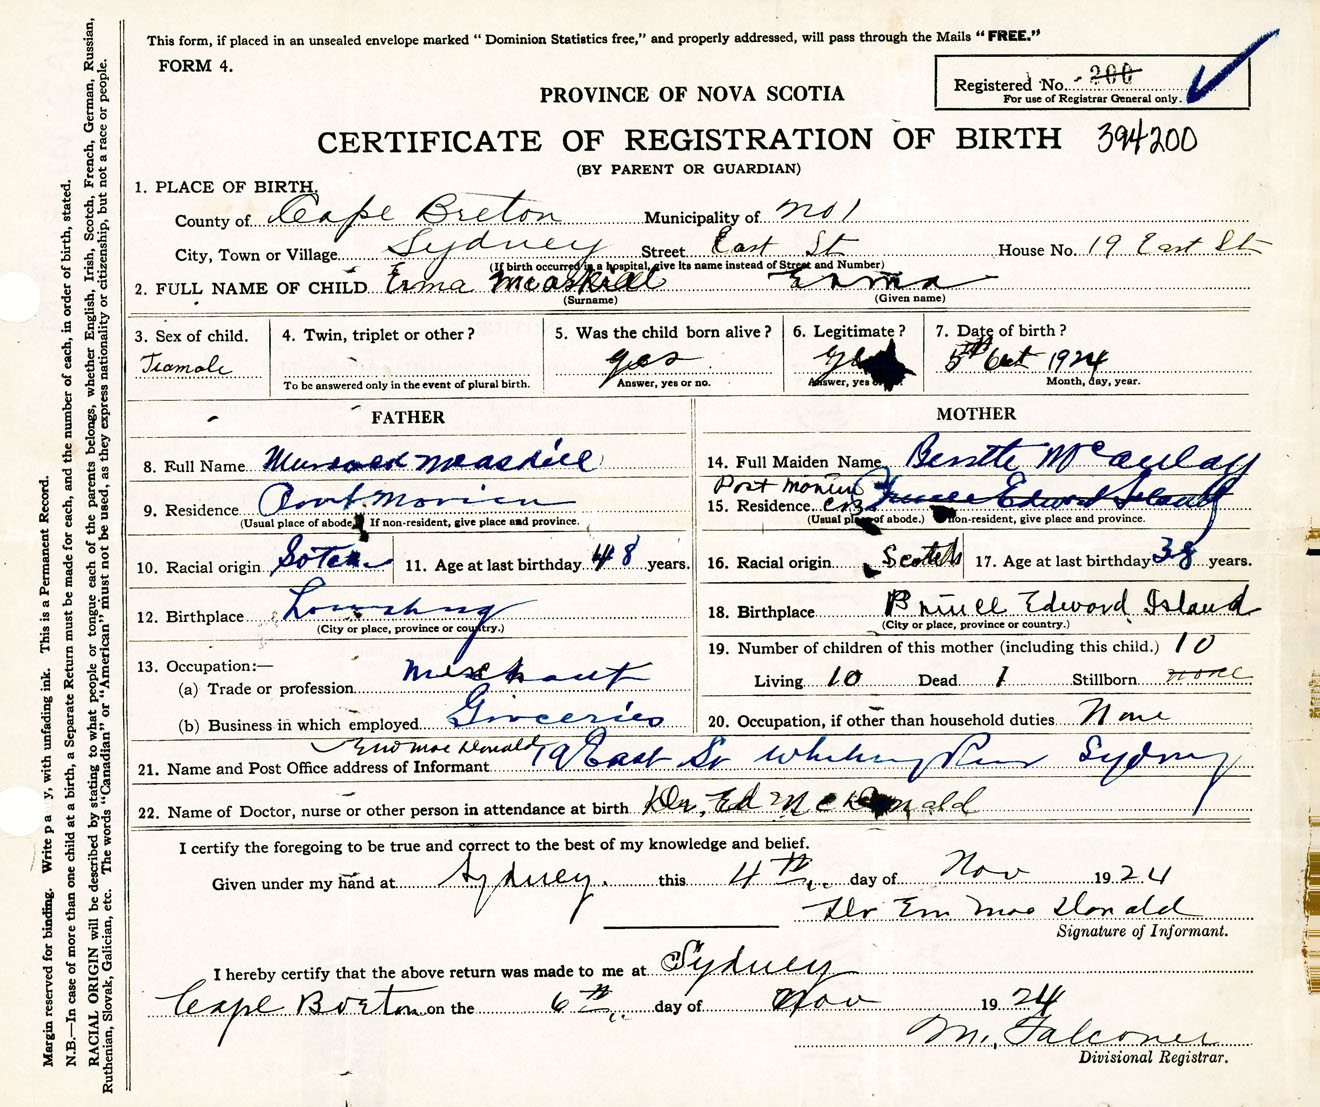 This form, if placed in an unsealed envelope marked “ Dominion Statistics free,” and properly addressed, will pass through the Mails “FREE.”
FORM 4.
Registered No. 200
For use of Registrar General only.
PROVINCE OF NOVA SCOTIA
CERTIFICATE OF REGISTRATION OF BIRTH 394200
(BY PARENT OR GUARDIAN)
1. PLACE OF BIRTH,
County of Cape Breton Municipality of No 1
City, Town or Village Sydney Street East St House No. 19 East St
(If birth occurred in a hospital, give its name instead of Street and Number)
2. FULL NAME OF CHILD Erma McAskill Erma
(Surname) (Given name)
3. Sex of child. 4. Twin, triplet or other? 5. Was the child born alive? 6. Legitimate? 7. Date of birth?
Feamale yes 5th Oct 1924
To be answered only in the event of plural birth. Answer, yes or no. Answer, yes Month, day, year.
FATHER MOTHER
8. Full Name McAskill 14. Full Maiden Name McAulay
Port Morien
9. Residence Port Morien 15. Residence C.B. Prince Edward Island
(Usual place of abode. If non-resident, give place and province. (Usual place of abode.) non-resident, give place and province.
10. Racial origin 11. Age at last birthday 48 years. 16. Racial origin Scotch 17. Age at last birthday 38 years.
12. Birthplace 18. Birthplace Prince Edward Island
(City or place, province or country.) (City or place, province or country.)
13. Occupation:— 19. Number of children of this mother (including this child.) 10
(a) Trade or profession Merchant Living 10 Dead 1 Stillborn none
(b) Business in which employed Groceries 20. Occupation, if other than household duties None
MacDonald
21. Name and Post Office address of Informant 19 East St Whitney Pier Sydney
22. Name of Doctor, nurse or other person in attendance at birth Dr, Ed McDonald
I certify the foregoing to be true and correct to the best of my knowledge and belief.
Given under my hand at Sydney. this 4th day of Nov 1924
Dr Em MacDonald
Signature of Informant.
I hereby certify that the above return was made to me at Sydney
Cape Breton on the 6th day of Nov 1924
M. Falconer
Divisional Registrar.
Margin reserved for binding. Write pa y, with unfading ink. This is a Permanent Record.
N.B.—In case of more than one child at a birth, a Separate Return must be made for each, and the number of each, in order of birth, stated.
RACIAL ORIGIN will be described by stating to what people or tongue each of the parents belongs, whether English, Irish, Scotch, French, German, Russian,
Ruthenian, Slovak, Galician, etc. The words “Canadian” or “American” must not be used, as they express nationality or citizenship, but not a race or people.